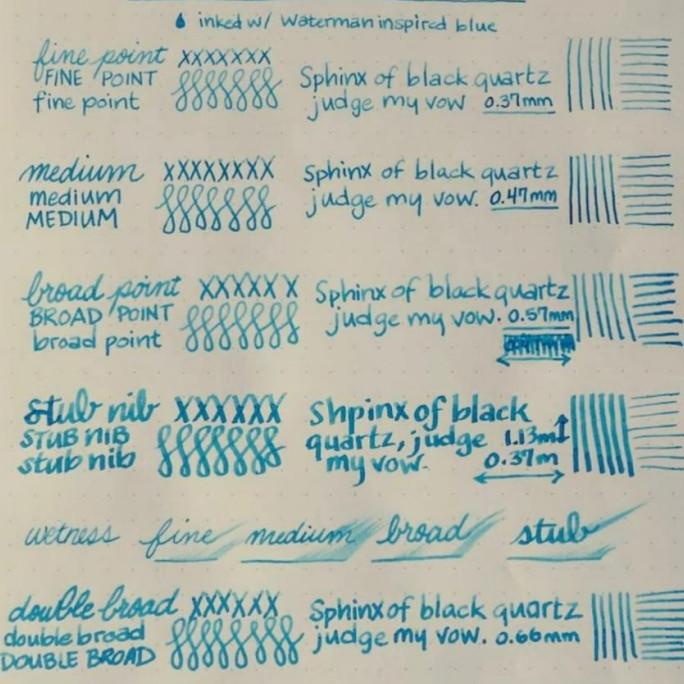 inked w/ Waterman inspired blue
fine point XXXXXXX
FINE POINT
fine point
Sphinx of black quartz
judge my vow 0.37mm
medium XXXXXXXX
medium
MEDIUM
Sphinx of black quartz
judge my vow. 0.47mm
broad point XXXXXX
BROAD POINT
broad point
Sphinx of black quartz
judge my vow. 0.57mm
stub nib XXXXXX
STUB NIB
stub nib
Shpinx of black
quartz, judge 1.13m
my vow. 0.37m
wetness fine medium broad stub
double broad XXXXXX
double broad
DOUBLE BROAD
Sphinx of black quartz
judge my vow. 0.66mm